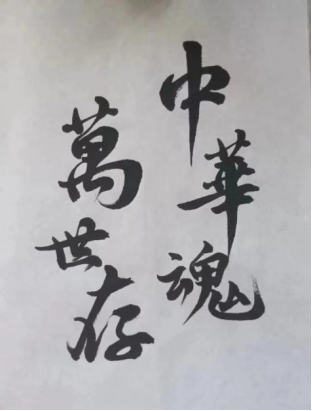 中華魂
萬世存